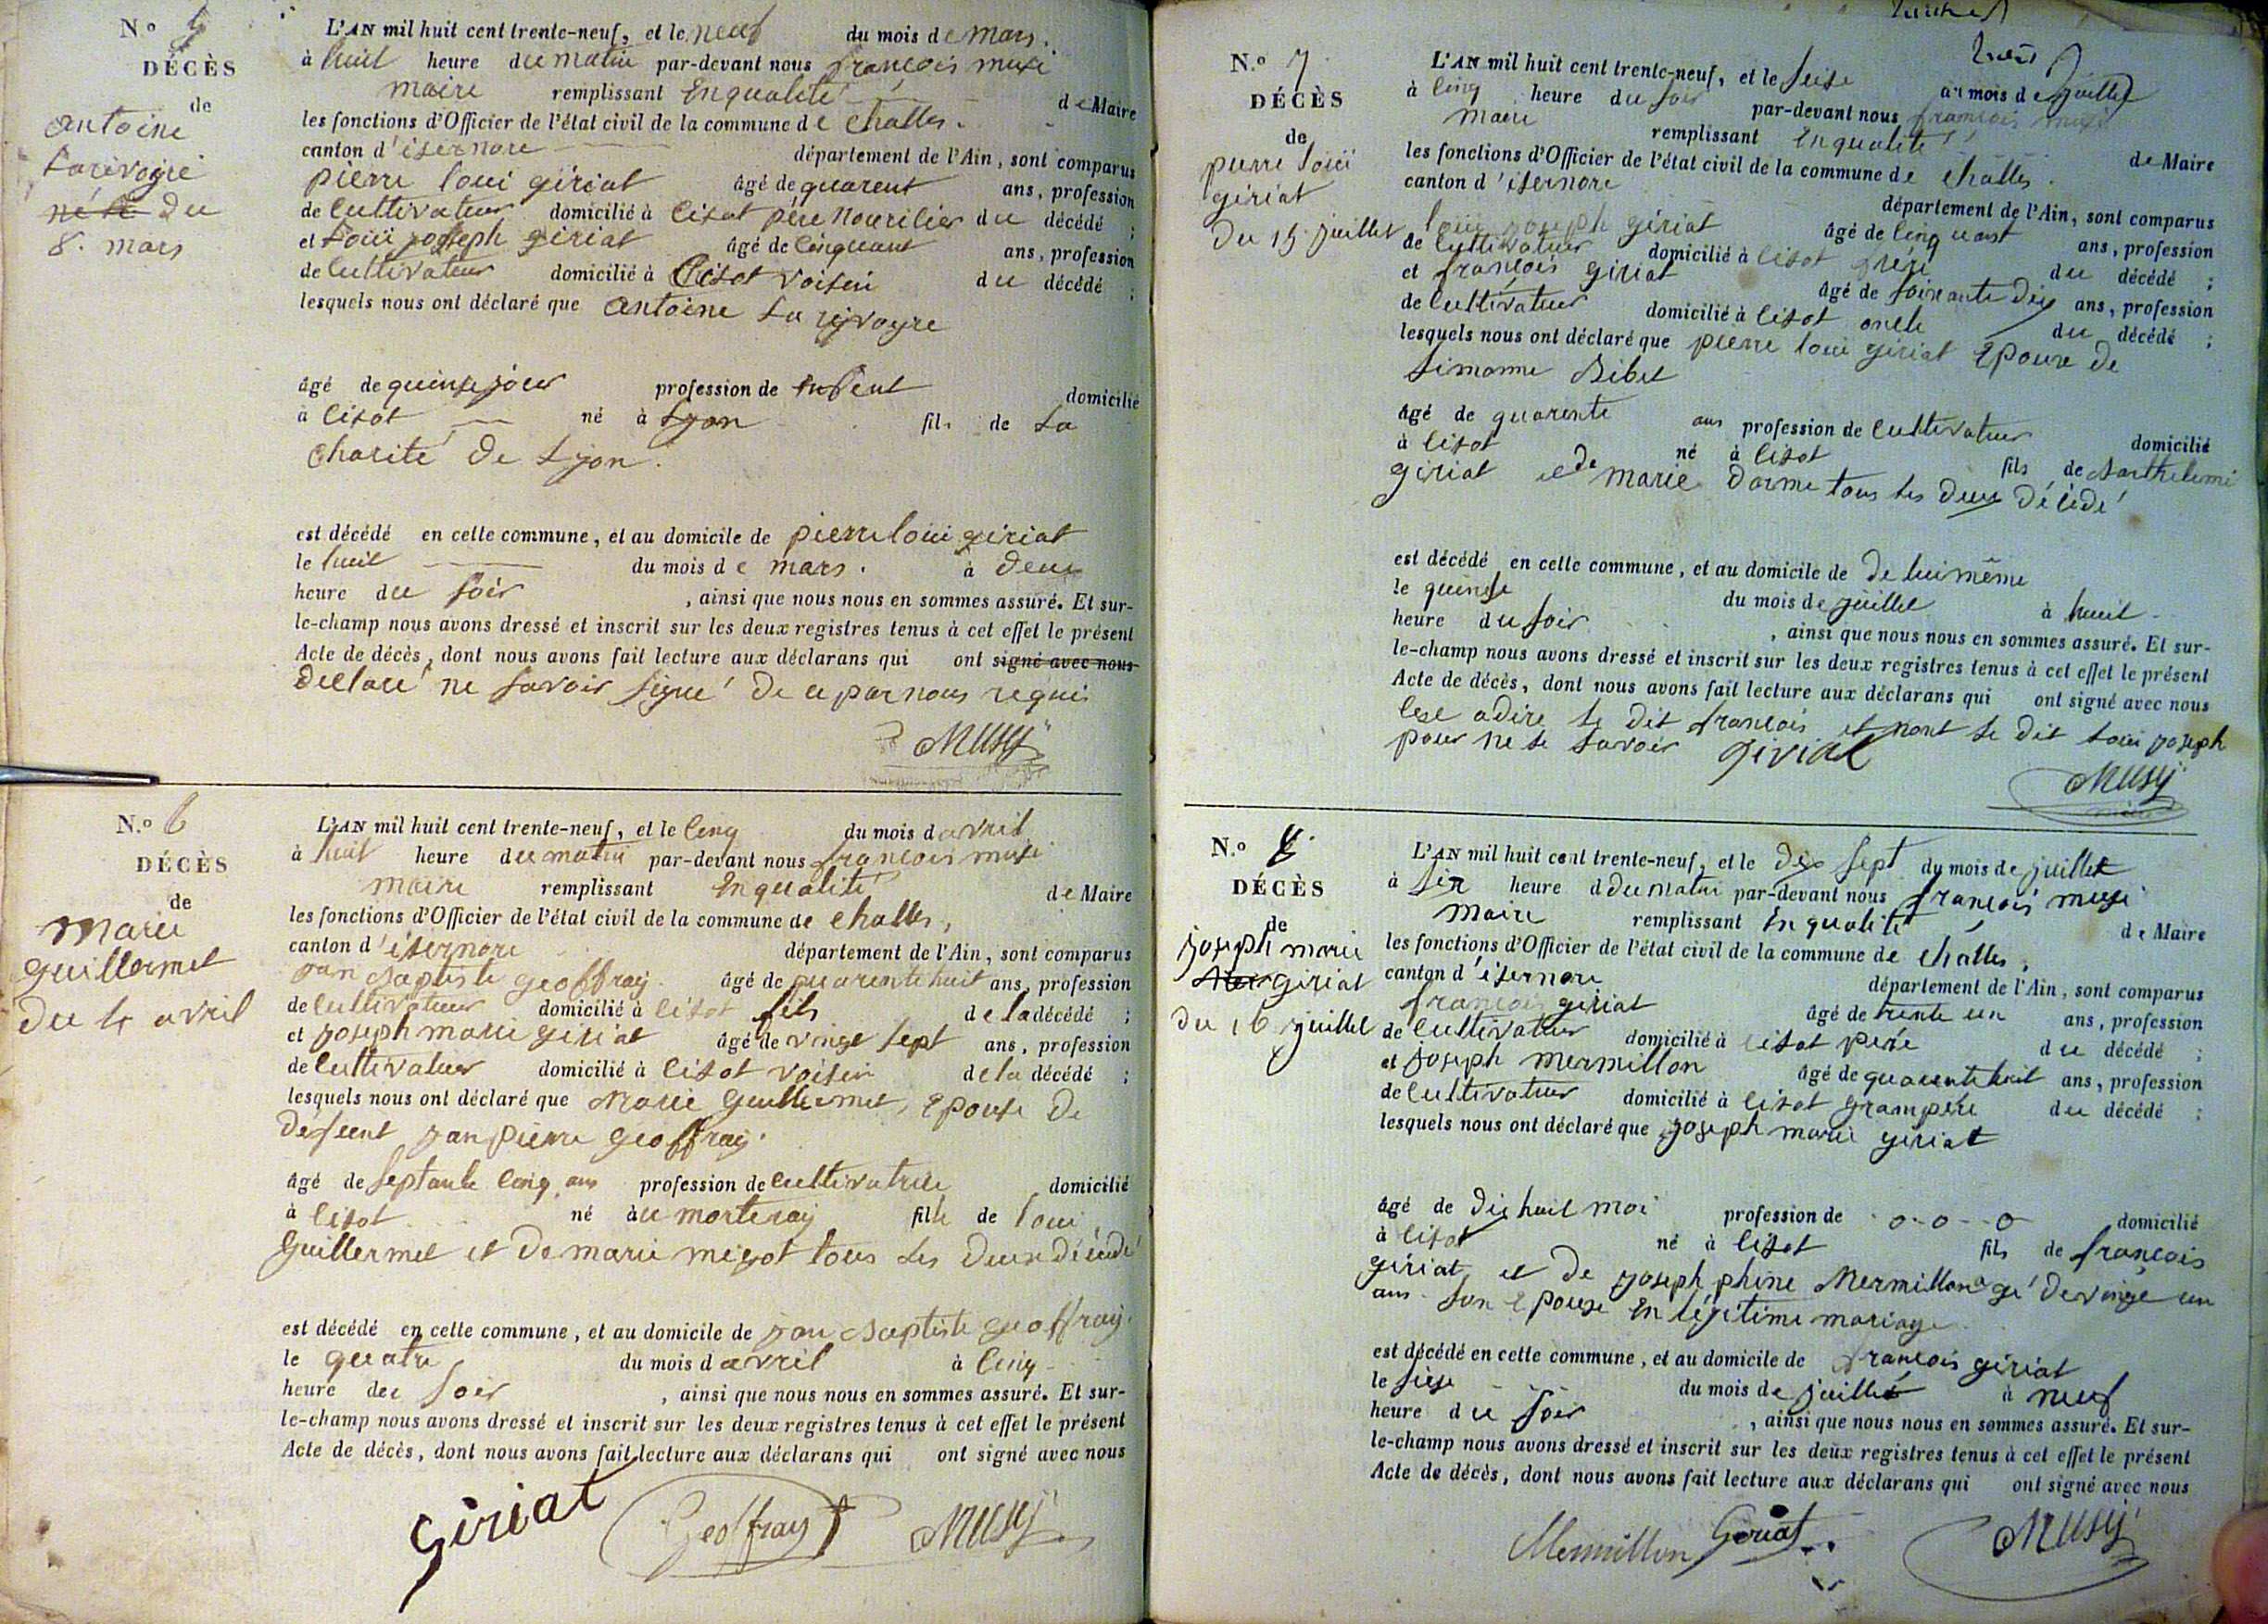 N.o 5
DÉCÈS
de
antoine
Larivoyre
né le du
8. mars
L'AN mil huit cent trente-neuf, et le neuf du mois de mars.
à huit heure du matin par-devant nous françois musi
maire remplissant En qualité de Maire
les fonctions d'Officier de l'état civil de la commune de challes.
canton d'isernore département de l'Ain, sont comparus
pierre loui giriat âgé de quarent ans, profession
de cultivateur domicilié à cisot père nourilier du décédé ;
et Loui joseph giriat âgé de cinquant ans, profession
de cultivateur domicilié à Cisot voisin du décédé ;
lesquels nous ont déclaré que antoine La rivoyre
âgé de quinse jour profession de enfent domicilié
à cisot né à Lyon fils de La
charité de Lyon.
est décédé en cette commune, et au domicile de pierre loui giriat
le huit du mois de mars. à deux
heure du soir , ainsi que nous nous en sommes assuré. Et sur-
le-champ nous avons dressé et inscrit sur les deux registres tenus à cet effet le présent
Acte de décès, dont nous avons fait lecture aux déclarans qui ont signé avec nous
declaré ne savoir signé de ce par nous requi
Musy
N.o 6
DÉCÈS
de
Marie
guillermet
du 4 avril
L'AN mil huit cent trente-neuf, et le cinq du mois d avril
à huit heure du matin par-devant nous françois musi
maire remplissant En qualité de Maire
les fonctions d'Officier de l'état civil de la commune de challes,
canton d'isernore département de l'Ain, sont comparus
jan Baptiste geoffray âgé de quarente huit ans, profession
de cultivateur domicilié à cisot fils de la décédé ;
et joseph marie giriat âgé de vingt sept ans, profession
de cultivateur domicilié à cisot voisin de la décédé ;
lesquels nous ont déclaré que Marie guillermet, Epouse de
defeent jan pierre geoffray.
âgé de septante cinq ans profession de cultivatrice domicilié
à cisot né àu morteray fille de loui
guillermet et de marie migot tous les deux décédé
est décédé en cette commune, et au domicile de jan Baptiste geoffray.
le quatre du mois d avril à cinq
heure du soir , ainsi que nous nous en sommes assuré. Et sur-
le-champ nous avons dressé et inscrit sur les deux registres tenus à cet effet le présent
Acte de décès, dont nous avons fait lecture aux déclarans qui ont signé avec nous
Giriat Geoffray Musy
N.o 7
DÉCÈS
de
pierre loui
giriat
du 15 juillet
L'AN mil huit cent trente-neuf, et le seise du mois de juillet
à cinq heure du soir par-devant nous francois musi
maire remplissant En qualité de Maire
les fonctions d'Officier de l'état civil de la commune de challes.
canton d'isernore département de l'Ain, sont comparus
loui joseph giriat âgé de cinquant ans, profession
de cultivateur domicilié à cisot frère du décédé ;
et françois giriat âgé de soixante dix ans, profession
de cultivateur domicilié à cisot oncle du décédé ;
lesquels nous ont déclaré que pierre loui giriat Epoux de
Simonne Bibet
âgé de quarente ans profession de cultivateur domicilié
à cisot né à cisot fils de Barthelemi
giriat et de marie dorme tous les deux décédé
est décédé en cette commune, et au domicile de de lui même
le quinse du mois de juillet à huit
heure du soir , ainsi que nous nous en sommes assuré. Et sur-
le-champ nous avons dressé et inscrit sur les deux registres tenus à cet effet le présent
Acte de décès, dont nous avons fait lecture aux déclarans qui ont signé avec nous
cest adire le dit françois et nont le dit loui joseph
pour ne le savoir giriat
Musy
N.o 8.
DÉCÈS
de
joseph marie
giriat
du 16 juillet
L'AN mil huit cent trente-neuf, et le dix sept du mois de juillet
à six heure d du matin par-devant nous françois musi
maire remplissant En qualité de Maire
les fonctions d'Officier de l'état civil de la commune de challes,
canton d'isernore département de l'Ain, sont comparus
françois giriat âgé de trente un ans, profession
de cultivateur domicilié à cisot père du décédé ;
et joseph mermillon âgé de quarente huit ans, profession
de cultivateur domicilié à cisot grampère du décédé ;
lesquels nous ont déclaré que joseph marie giriat
âgé de dix huit moi profession de o-o--o domicilié
à cisot né à cisot fils de françois
giriat et de joseph phine Mermillon agé de vingt un
ans son Epouse En légitime mariage
est décédé en cette commune, et au domicile de françois giriat
le seise du mois de juillet à neuf
heure du soir , ainsi que nous nous en sommes assuré. Et sur-
le-champ nous avons dressé et inscrit sur les deux registres tenus à cet effet le présent
Acte de décès, dont nous avons fait lecture aux déclarans qui ont signé avec nous
Mermillon Giriat Musy